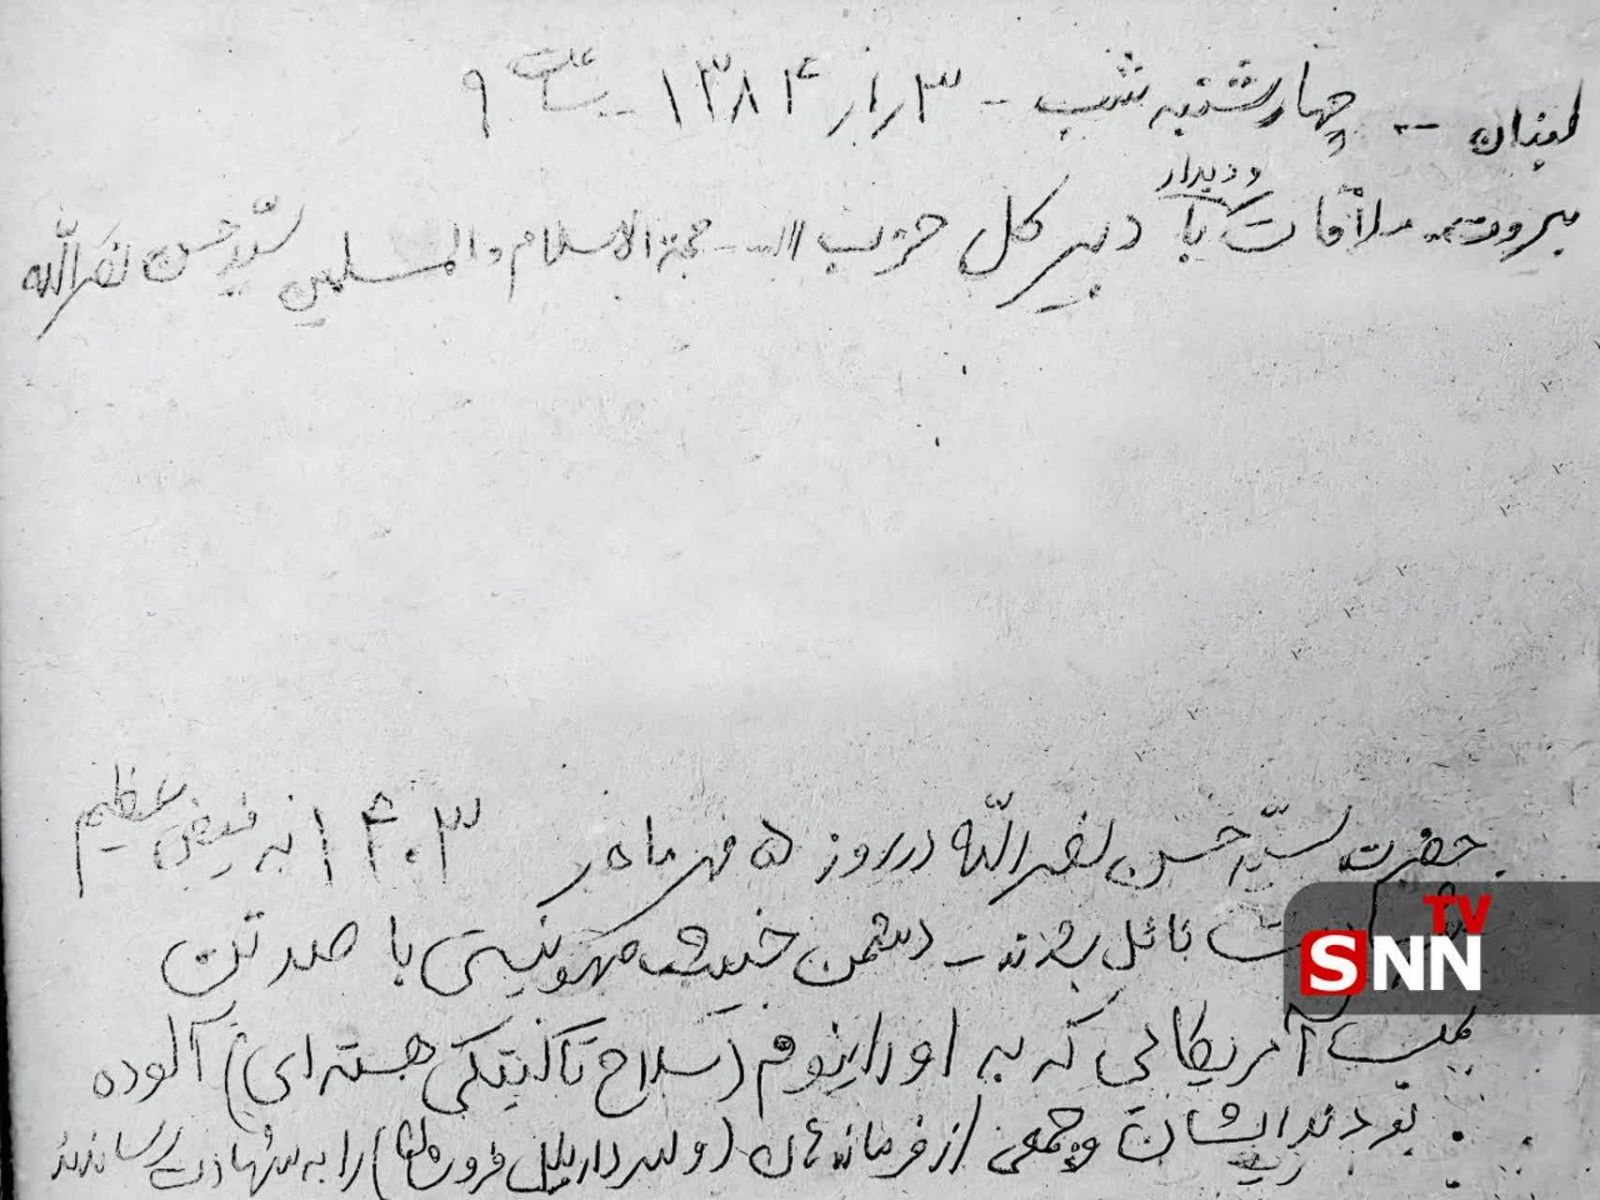 لبنان -- چهارشنبه شب - ۳ ر ۱ ر ۱۳۸۴ - ساعت ۹
و دیدار
بیروت ملاقات با دبیر کل حزب الله - حجة الاسلام والمسلمین سیّد حسن نصراللّه
حضرت سیّد حسن نصراللّه در روز ۵ مهر ماه ۱۴۰۳ به فیض عظیم
نائل شدند - دشمن خبیث صهونیستی با صد تن
بمب آمریکائی که به اورانیوم (سلاح تاکتیکی هسته ای) آلوده
بودند ایشان و جمعی از فرماندهان (و سردار نیل فروشان) را به شهادت رساندند
SNN TV